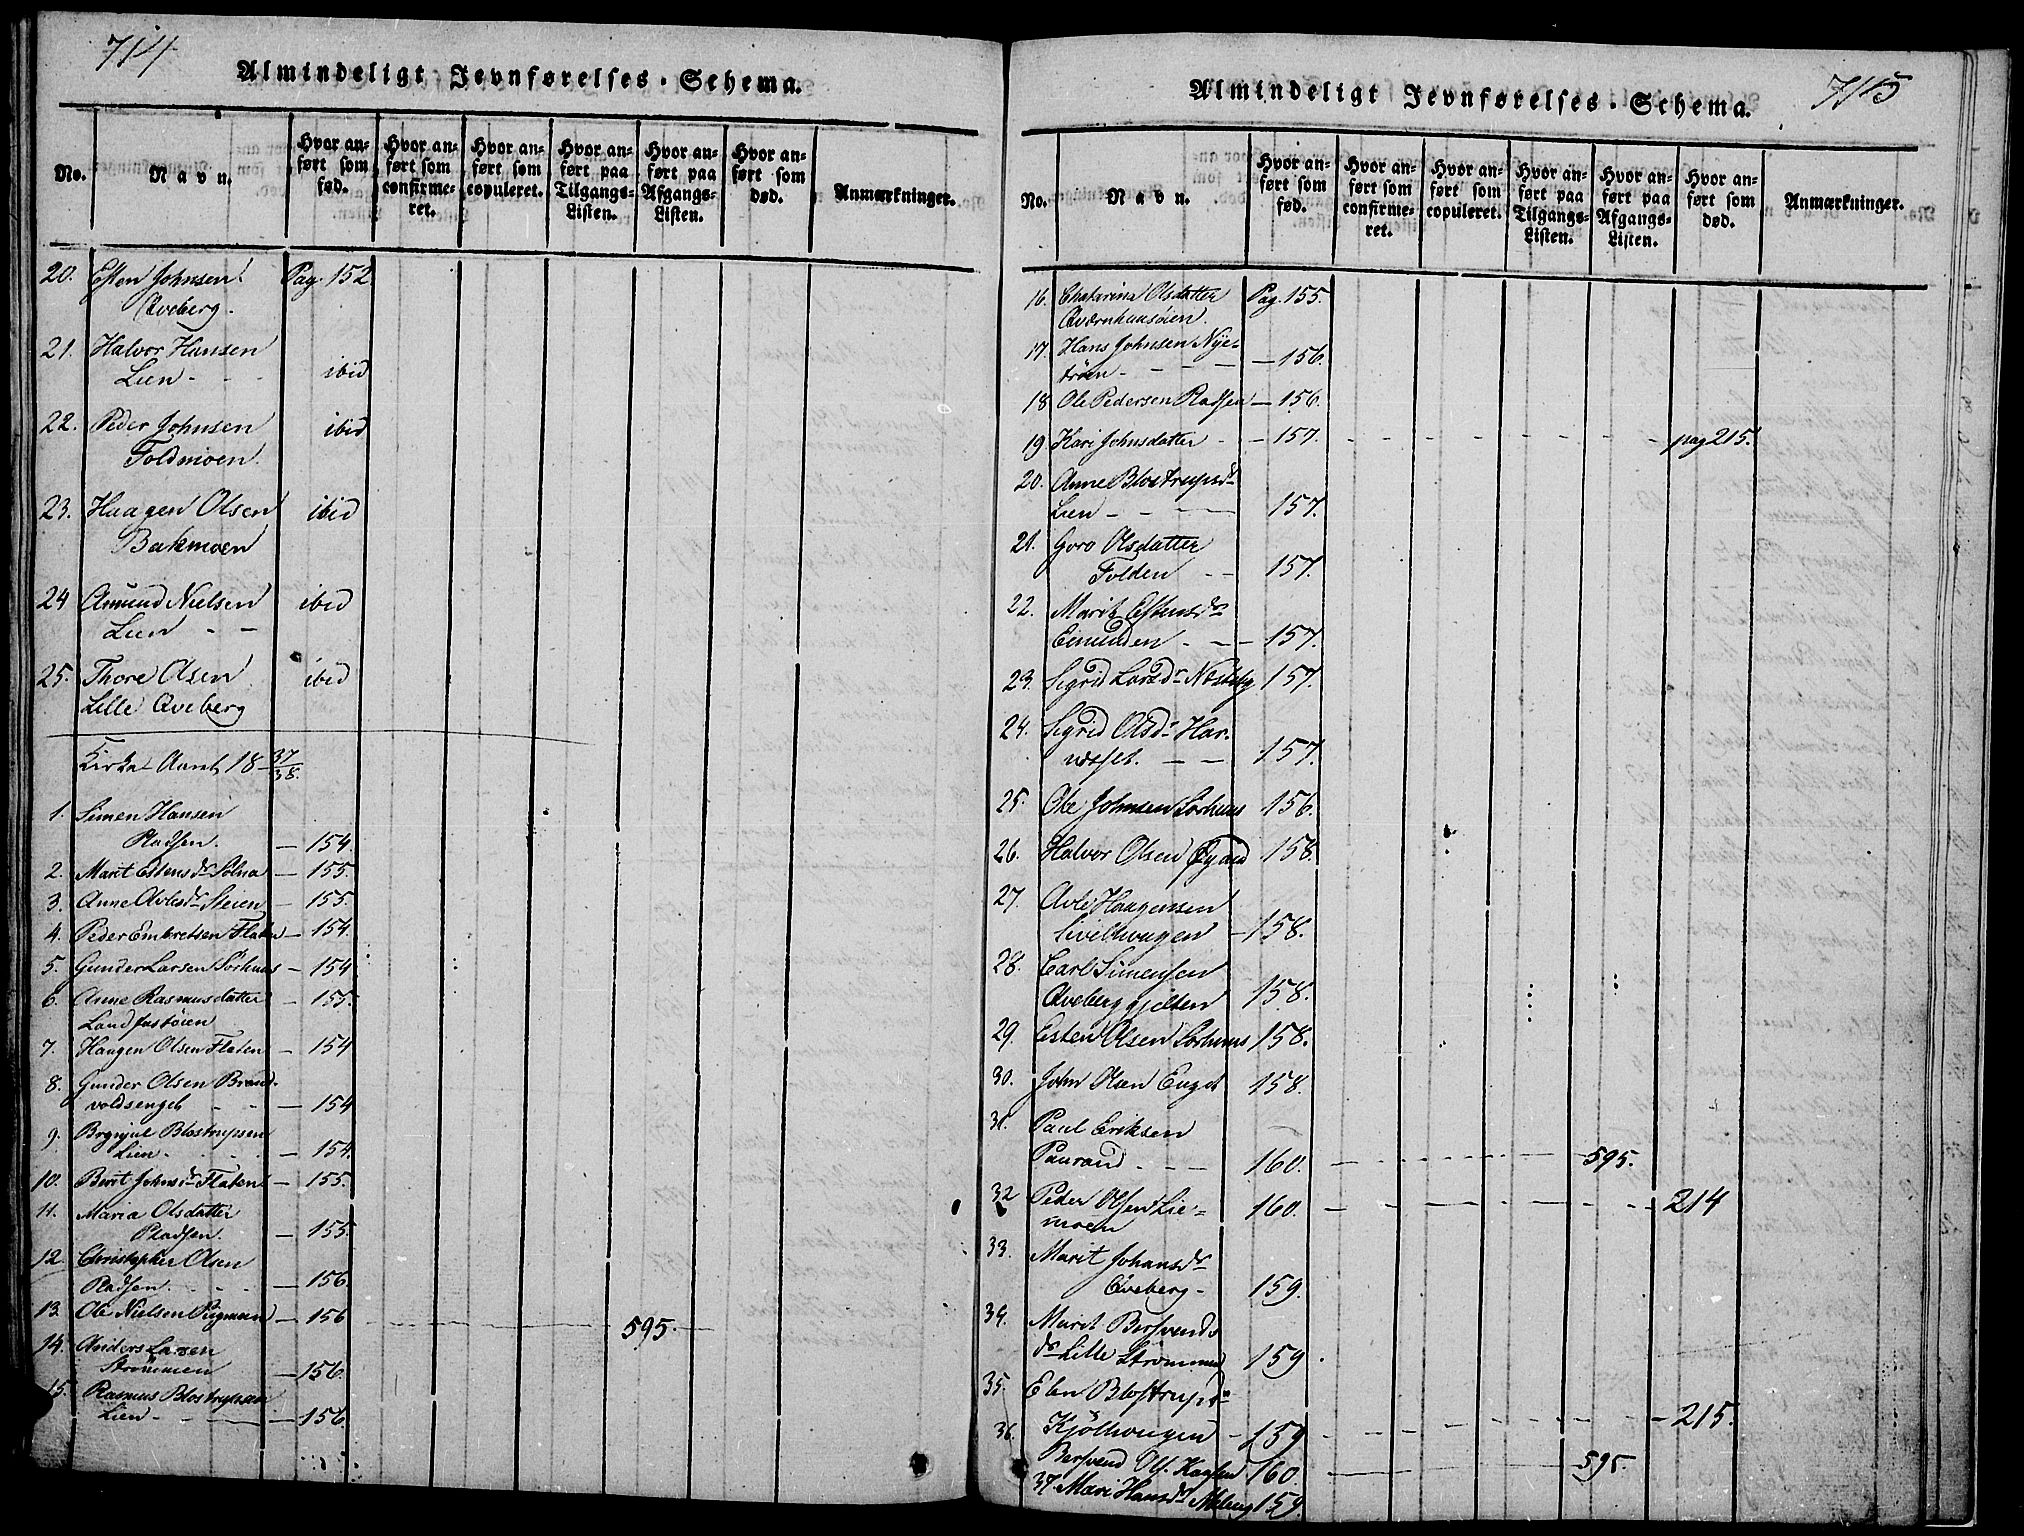 714
Almindeligt Jevnførelses-Schema.
No.
Navn.
Hvor anført som fød.
Hvor anført som confirmeret.
Hvor anført som copuleret.
Hvor anført paa Tilgangs-Listen.
Hvor anført paa Afgangs-Listen.
Hvor anført som død.
Anmærkninger.
20. Esten Johnsen Pag. 152
Qveberg.
21. Halvor Hansen
Lien - - ibid
22. Peder Johnsen ibid
Foldmoen.
23. Haagen Olsen ibid
Bakmoen
24 Amund Nielsen ibid
Lien - -
25. Thore Olsen ibid
Lille Qveberg
Kirke-Aaret 18 37/38.
1. Simen Hansen
Pladsen. — 154.
2. Marit Estensdr Sølna — 155.
3. Anne Avlesdr Steien — 155.
4. Peder Embretsen Flaten — 154.
5. Gunder Larsen Sørhuus — 154
6. Anne Rasmusdatter — 155.
Landfastøien
7. Haagen Olsen Flaten — 154
8. Gunder Olsen Brand-
voldsenget - - — 154
9. Brynjul Blostrupsen
Lien - — 154.
10. Berit Johnsdr Flaten — 155.
11. Maria Olsdatter
Pladsen. — 155.
12. Christopher Olsen
Pladsen - — 156.
13. Ole Nielsen — 156 595.
14. Anders Larsen
Strømmen — 156.
15. Rasmus Blostrupsen
Lien - — 156.
715
Almindeligt Jevnførelses-Schema.
No.
Navn.
Hvor anført som fød.
Hvor anført som confirmeret.
Hvor anført som copuleret.
Hvor anført paa Tilgangs-Listen.
Hvor anført paa Afgangs-Listen.
Hvor anført som død.
Anmærkninger.
16. Chatarina Olsdatter Pag. 155.
Qværnhuusøien.
17. Hans Johnsen Nye-
trøen - - — 156.
18 Ole Pedersen Pladsen — 156.
19. Kari Johnsdatter - — 157. pag 215.
20. Anne Blostrupsdr
Lien - - 157.
21. Goro Olsdatter
Folden - - 157.
22. Marit Estensdr
Eenunden - — 157.
23. Sigrid Larsdr 157.
24. Sigrid Olsdr Har-
157.
25. Ole Johnsen Sørhuus 156.
26. Halvor Olsen Øyard 158.
27. Avle Haagensen
— 158.
28. Carl Simensen
Qveberggjelten 158.
29. Esten Olsen Sørhuus 158.
30. John Olsen Enget 158.
31. Paul Eriksen
Paurand - - 160. 595.
32 Peder Olsen Lie-
moen 160. 214
33. Marit Johansdr
Qveberg - 159.
34. Marit Bersvends
dr Lille Strømmen 159.
35. Elen Blostrupsdr
Kjølhougen - 159 215.
36. Bersvend 160 595.
37. Mari Hansdr 159.